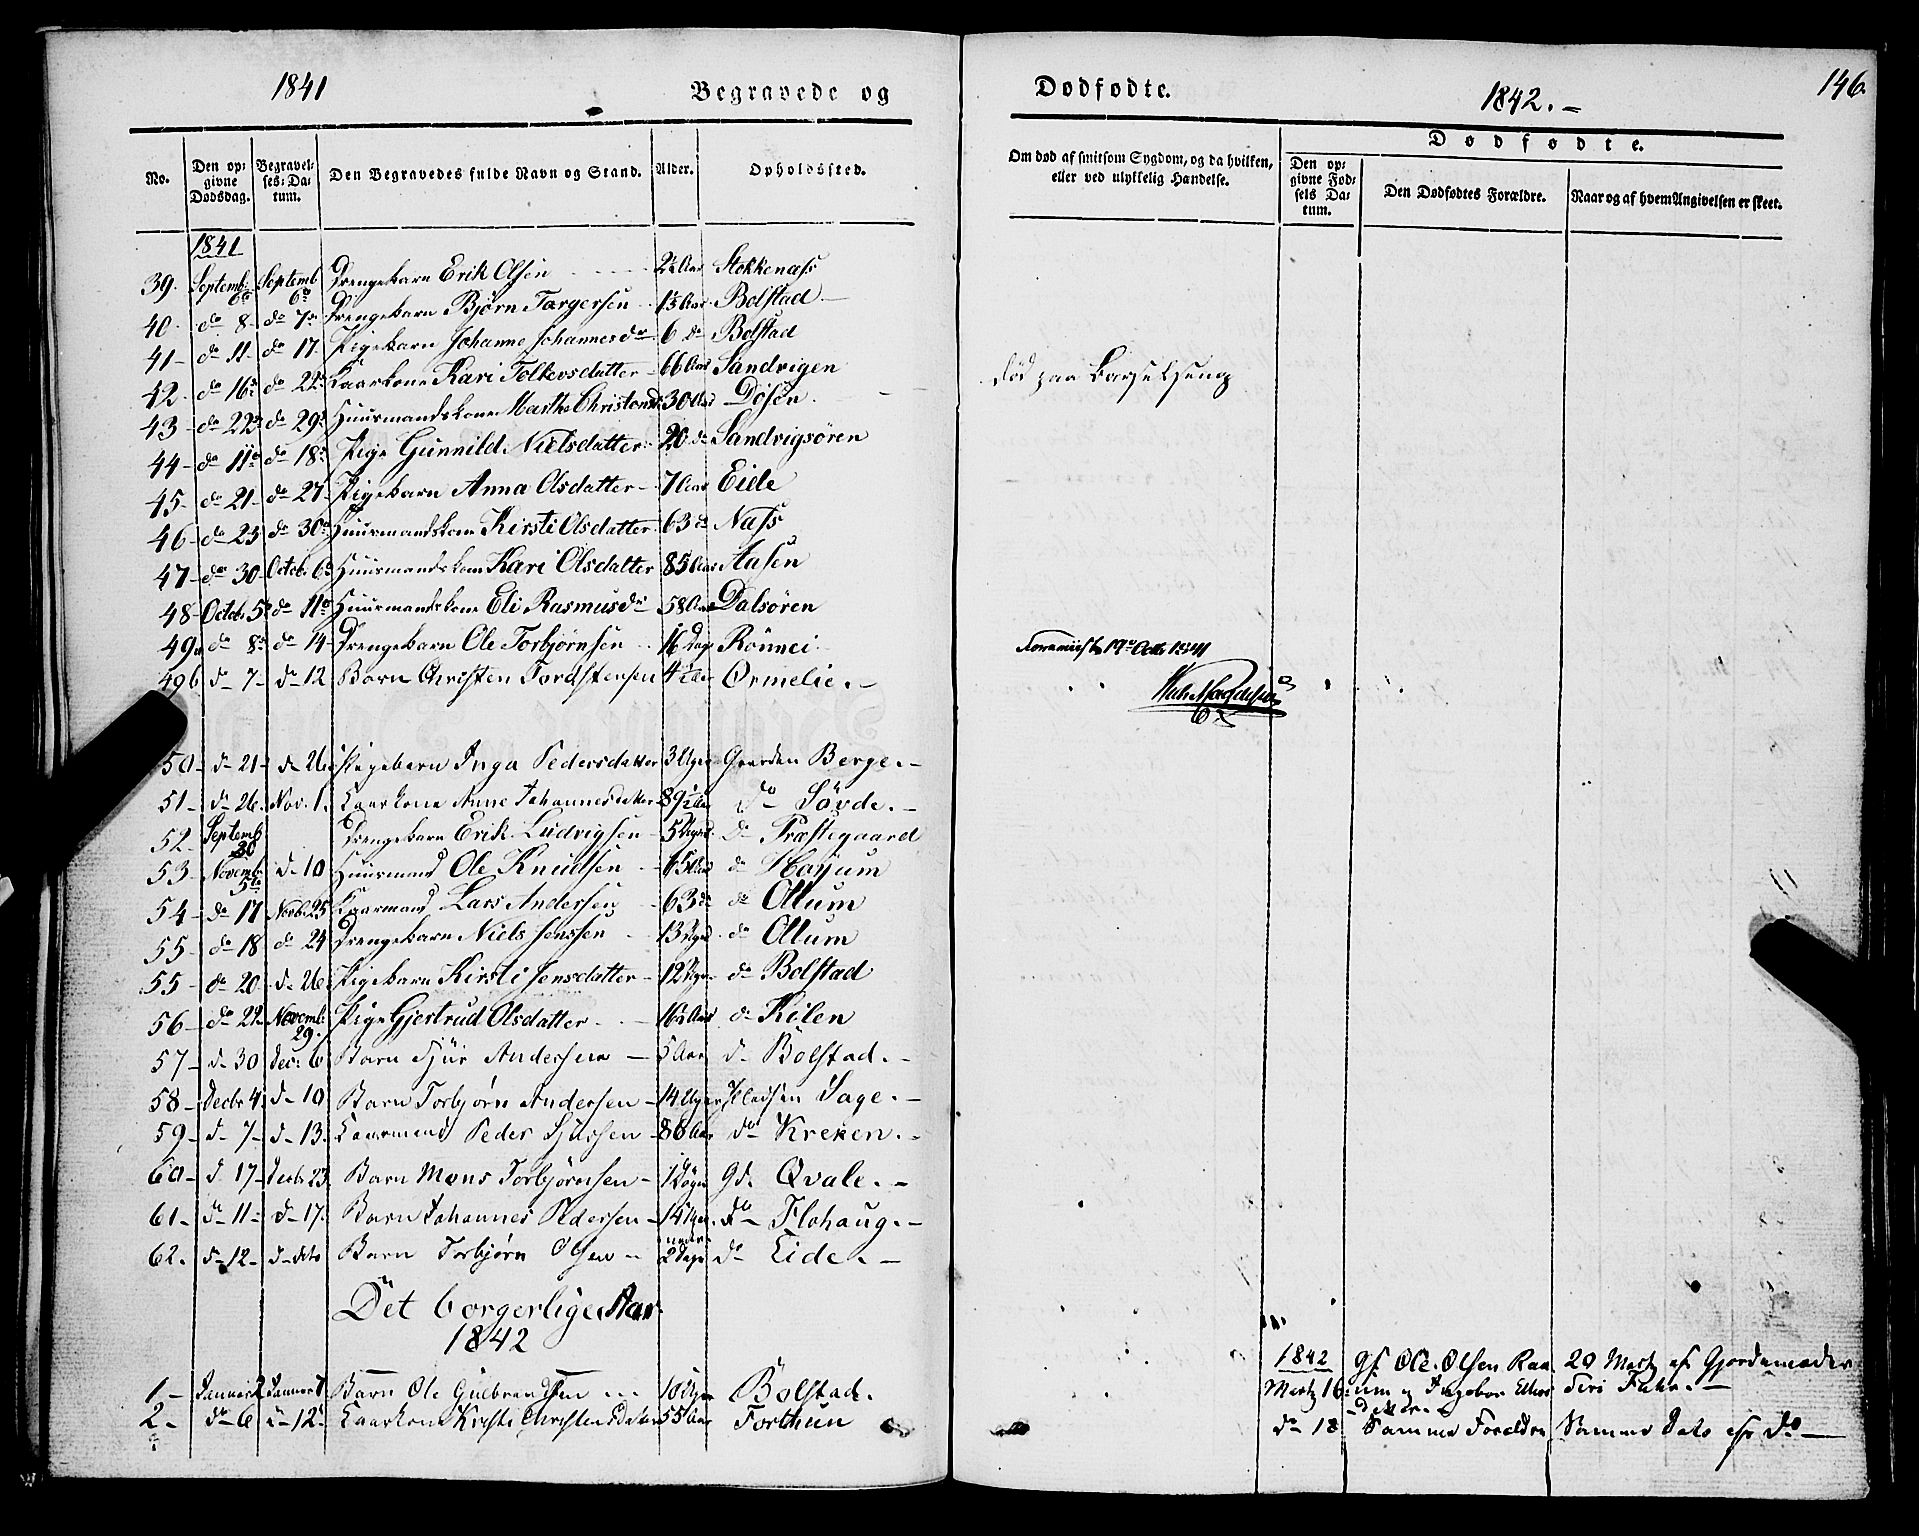 1841
Begravede og
Dødfødte.
1842. –
146.
No.
Den opgivne Dødsdag.
Begravelses-Datum.
Den Begravedes fulde Navn og Stand.
Alder.
Opholdssted.
Om død af smitsom Sygdom, og da hvilken, eller ved ulykkelig Hændelse.
Dødfødte.
Den opgivne Fødsels Datum.
Den Dødfødtes Forældre.
Naar og af hvem Angivelsen er skeet.
1841
39. Septemb. Septemb 6te Drengebarn Erik Olsen 2½ Aar Stokkenæss
40. do 8 do 7de Drengebarn Bjørn Targersen Bolstad
41 – do 11 – do 17. Pigebarn Johanne Johannesdr 6 do Bolstad
42. do 16de do 22 Kaarkone Kari Folkevsdatter 66 Aar Sandvigen
43 – do 22de do 29de Huusmandskone Marthe Christensd 30 Aar Døsen. død paa Barselseng
44 – do 11te do 18de Pige Gunnild Nielsdatter 20 do Sandvigsøren
45 – do 21 – do 27. Pigebarn Anna Olsdatter – 7 Aar Eide
46 – do 23 do 30te Huusmandskone Kirsti Olsdatter 63 do Næss
47 – do 30 Octob. 6te Huusmandskone Kari Olsdatter 85 Aar Aasen
48 – Octob. 5te do 11te Huusmandskone Eli Rasmusdr 58 Aar Dalsøren
49a do 8de do 14 – Drengebarn Ole Torbjørnsen 16 Dage Rønnei
49b d– 7 – d– 12 Barn Christen Tordstensen 4½ Aar Ormelie. –
19de Octb 1841
50 – d– 21 – d– 26 Pigebarn Inga Pedersdatter 3 Uger Gaarden Berge. –
51 – d– 26. Nov. 1. Kaarkone Anne Johannesdatter 89½ Aar do Søvde. –
52 – Septemb 30 Drengebarn Erik Ludvigsen 5 Uger do Præstegaard
53 – Novemb 5te d– 10 Huusmand Ole Knudsen 65 Aar do Høyum
54 – do 17 Novb. 25 Kaarmand Lars Andersen – 63 do do Ottum
55 – do 18 do 24 Drengebarn Niels Jenssen 13 Uger do Ottum
55 – do 20. d– 26 Pigebarn Kirsti Jensdatter – 12 Uger do Bolstad
56 – do 22 Novemb: 29. Pige Gjertrud Olsdatter 16½ Aar do Kilen
57 – d– 30 Dec. 6 Barn Sjur Andersen – 5 Aar d– Bolstad. –
58 – Decbr 4. d– 10 Barn Torbjørn Andersen – 14 Uger Pladsen Sage. –
59 – d– 7 – d– 13. Kaarmand Peder Sjursen 86 Aar do Kreken. –
60 – d 17 – Decb. 23. Barn Mons Torbjørnsen – 1 Døgn gd. Qvale. –
61 – do 11 – d– 17. Barn Johannes Pedersen – 14 do Flohaug. –
62. d– 12 – d– dito Barn Torbjørn Olsen – 2 Dage do Eide. –
Det borgerlige Aar
1842
1 – Januar Januar Barn Ole Gulbrandsen 10 Uger Bolstad.
2 – do 6 d– 12 Kaarkone Kristi Christensdatter 55 Aar Forthun
1842 gf Ole Olsen Raa 20 Marts af Gjordemoder
Marts 16 um og Ingebor Ellers Siri Fuhr. –
datter –
do 18 Samme Forældre Samme Dato af do –